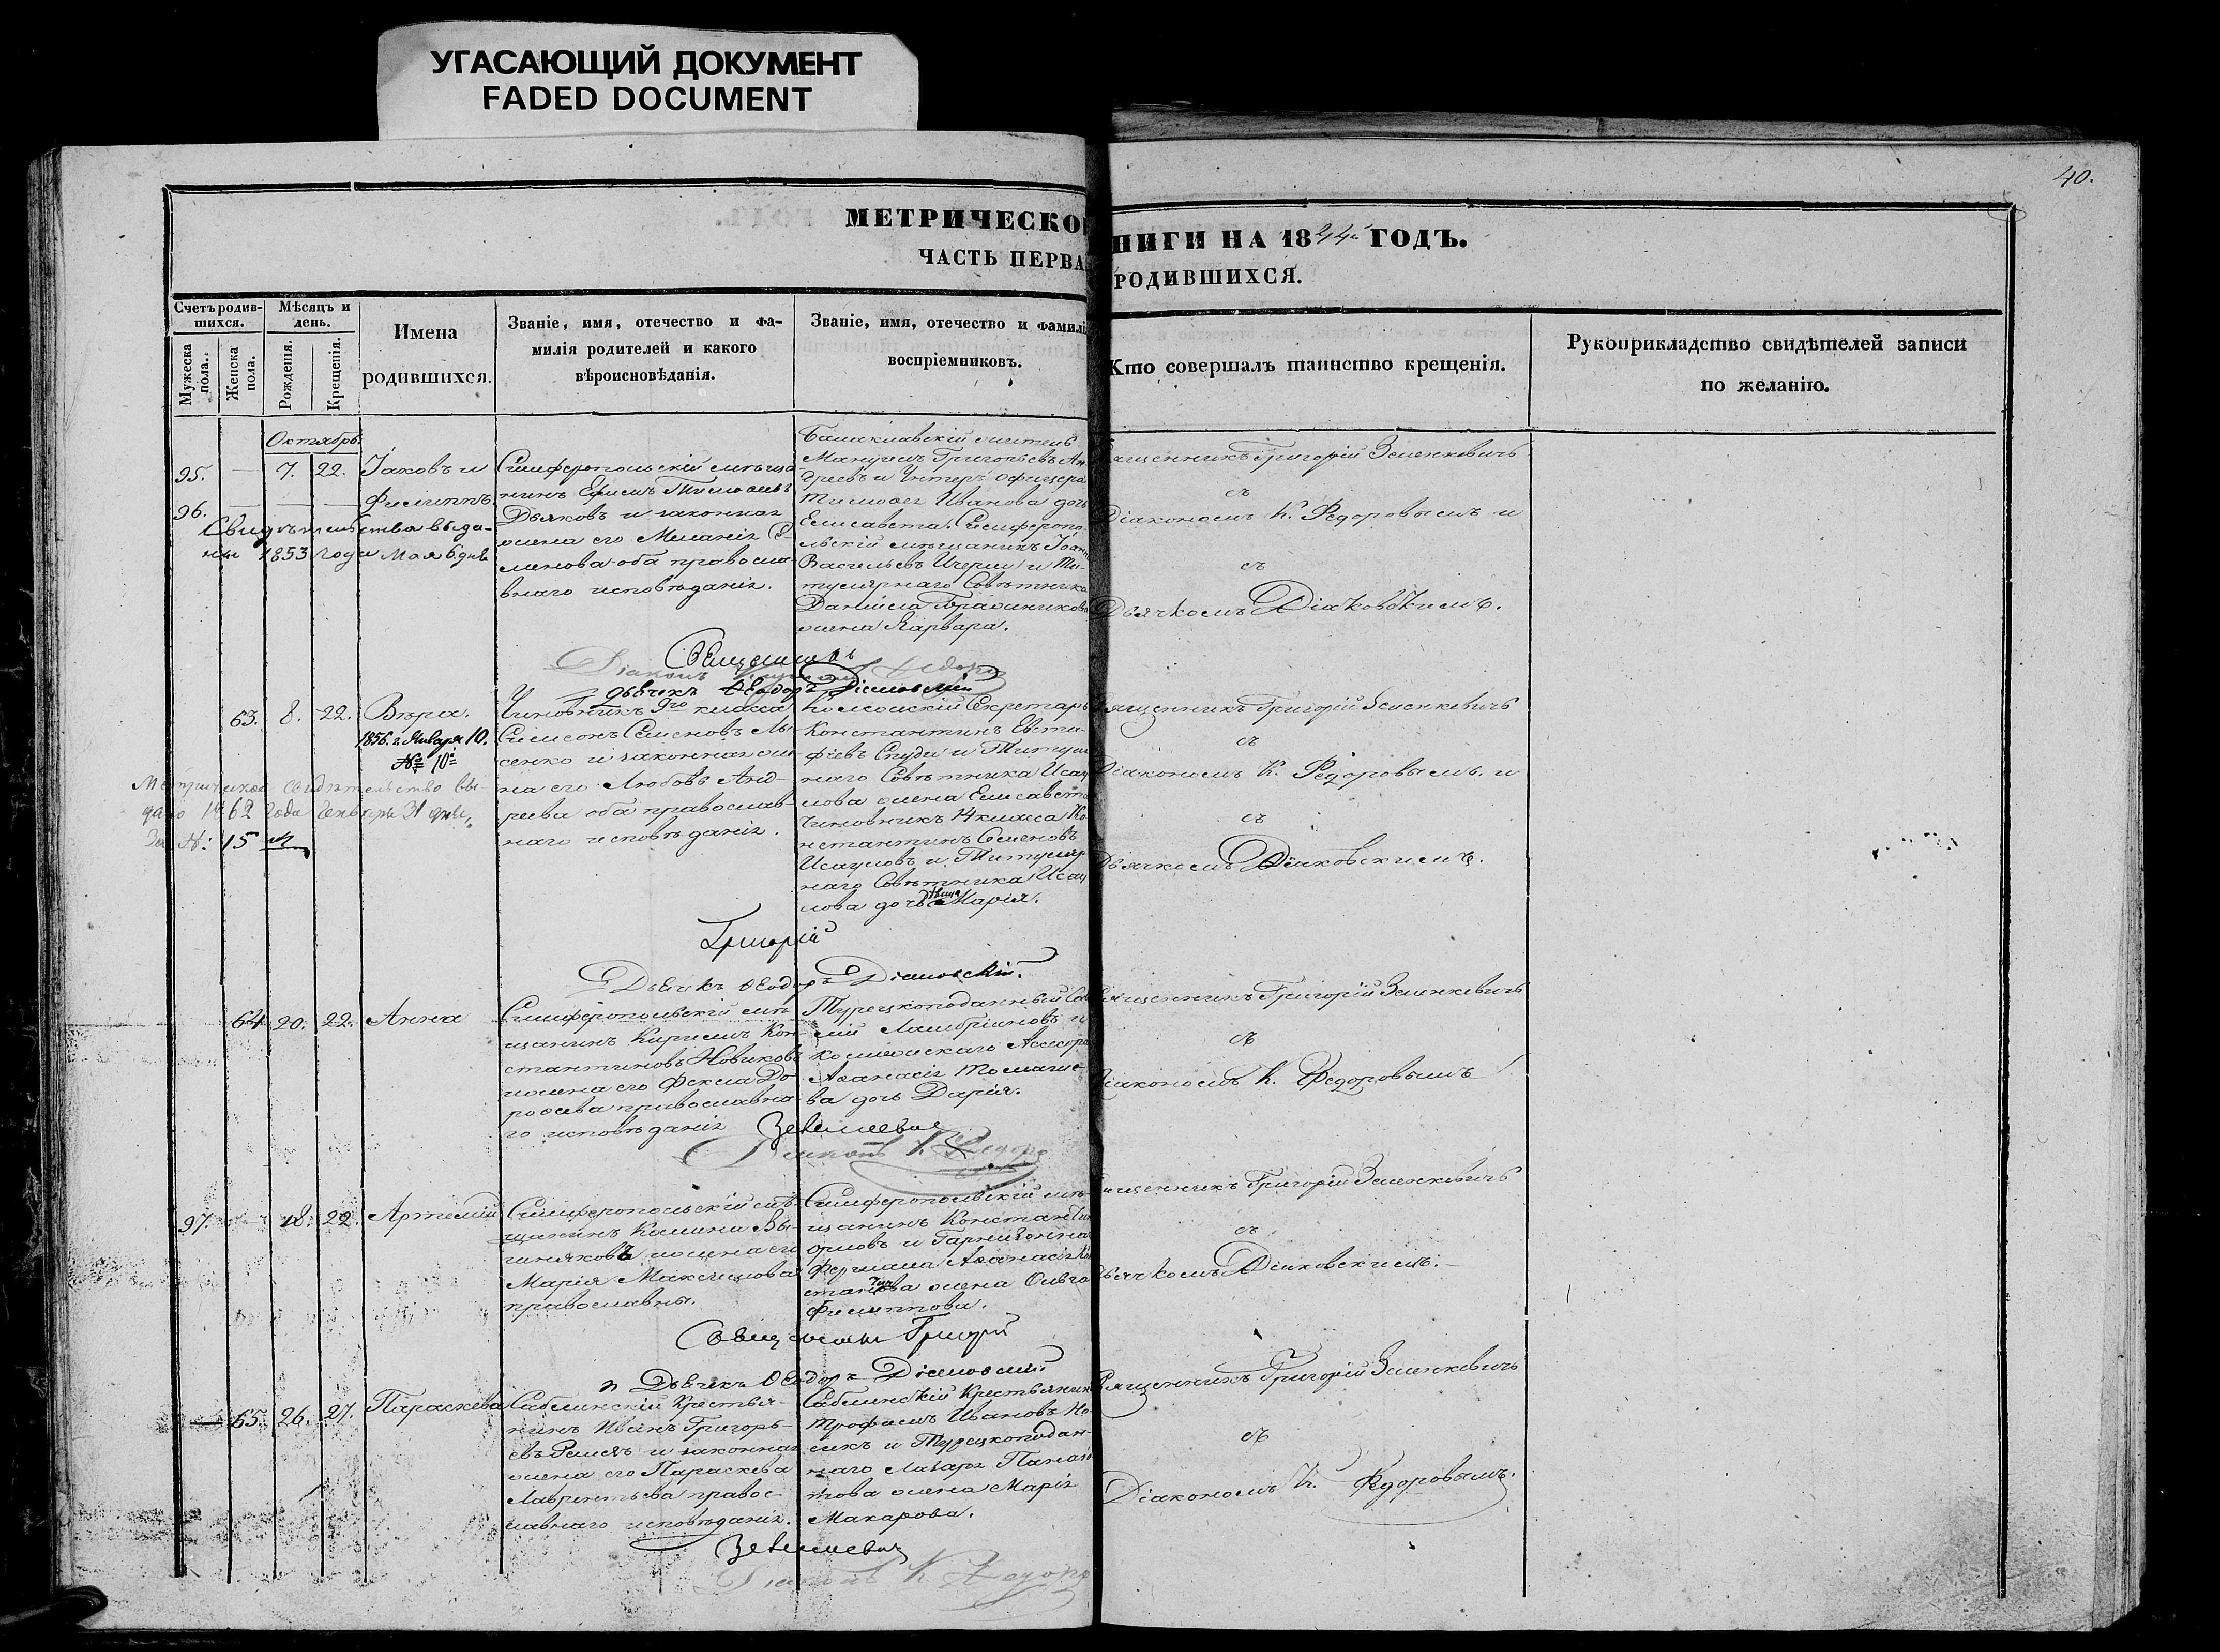 УГАСАЮЩИЙ ДОКУМЕНТ
FADED DOCUMENT
40.
МЕТРИЧЕСКО
НИГИ НА 1844 ГОДЪ.
ЧАСТЬ ПЕРВА
РОДИВШИХСЯ.
Счетъ родив-
шихся.
Мѣсяцъ и
день.
Мужеска
пола.
Женска
пола.
Рожденія.
Крещенія.
Имена
родившихся.
Званіе, имя, отечество и фа-
милія родителей и какого
вѣроисновѣданія.
Званіе, имя, отечество и фамилі
воспріемниковъ.
Кто совершалъ таинство крещенія.
Рукоприкладство свидѣтелей записи
по желанію.
Октябрь
95. — 7. 22. Іаковъ и
96. — — — Филиппъ.
Свидѣтельства выда-
ны 1853 года Мая 6 дня
Симферопольскій мѣща
нинъ Ефимъ Тимофеевъ
Дьяковъ и законная
жена его Меланія Се-
менова оба правосла-
внаго исповѣданія.
Балаклавскій житель
Мануилъ Григорьевъ Ан
дреевъ и Унтеръ офицера
Тимофея Иванова дочь
Елисавета. Симферопо-
льскій мѣщанинъ Іоаннъ
Васильевъ и Ти-
тулярнаго Совѣтника
Даніила Бражникова
жена Варвара.
Священникъ Григорій Зеленкевичъ
съ
Діакономъ К. Федоровымъ и
съ
Дьячкомъ Діаковскимъ.
Священникъ
Діаконъ К. Федоро
Дьячекъ Ѳеодоръ Діаковскій
63. 8. 22. Вѣра.
1856. г. Января 10.
№ 10
Метрическое свидѣтельство вы
дано 1862 года Генваря 31 дня,
За №: 15
Чиновникъ 9го класса
Симеонъ Семеновъ Лы-
сенко и законная же
на его Любовь Анд-
реева оба православ-
наго исповѣданія.
Коллежскій Секретарь
Константинъ Евти-
фіевъ Спуди и Титуляр
наго Совѣтника Исау
лова жена Елисавета
Чиновникъ 14 класса Ко
нстантинъ Семеновъ
Исауловъ и Титуляр
наго Совѣтника Исау
лова дочь Марія.
Священникъ Григорій Зеленкевичъ
съ
Діакономъ К. Федоровымъ. и
съ
Дьячкомъ Діаковскимъ.
Григорій
Дьячекъ Ѳеодоръ Діаковскій.
64. 20. 22. Анна
Симферопольскій мѣ-
щанинъ Кириллъ Кон
стантиновъ Новиковъ
и жена его Фекла До-
рофеева православна-
го исповѣданія
Турецкоподанный
Ламбріановъ и
Коллежскаго Ассесора
Афанасія Томаше-
ва дочь Дарія.
Священникъ Григорій Зеленкевичъ
съ
Діакономъ К. Федоровымъ
Зеленкевичъ
Діаконъ К. Федоро
97. 18. 22. Артемій
Симферопольскій мѣ-
щанинъ Калина Вы-
гиняковъ и жена его
Марія Максимова
православны.
Симферопольскій мѣ-
щанинъ Константинъ
Орловъ и Гарнизонна
Фершала Афанасія Кон
стантинова жена Ольга
Филиппова.
Священникъ Григорій Зеленкевичъ
съ
Дьячкомъ Діаковскимъ.
Священникъ Григорій
и Дьячекъ Ѳеодоръ Діаковскій
— 65. 26. 27. Параскева
Саблинскій Крестья-
нинъ Иванъ Григорь-
евъ и законная
жена его Параскева
Лаврентьева правос-
лавнаго исповѣданія.
Саблинскій Крестьянинъ
Трофимъ Ивановъ
и Турецкоподан-
наго Лазаря Панаіо
това жена Марія
Макарова.
Священникъ Григорій Зеленкевичъ
съ
Діакономъ К. Федоровымъ.
Зеленкевичъ
Діаконъ К. Федоро